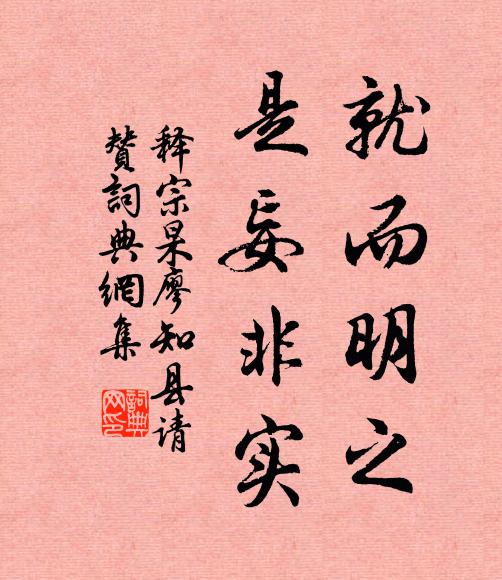 就而明之
是妄非实
释宗杲廖知县请
赞詞典網集
詞典
网印